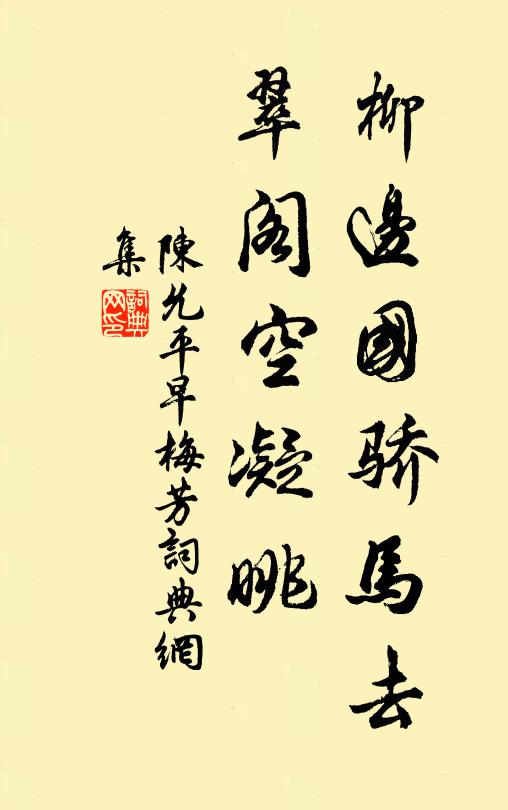 柳邊國骄馬去
翠阁空凝眺
陳允平早梅芳詞典網
集
詞典
网印